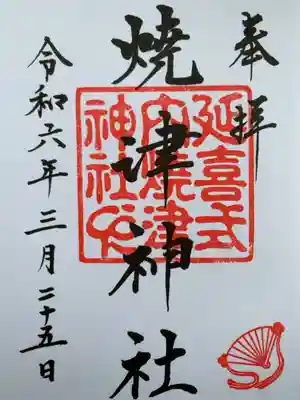 奉拝
焼津神社
延喜式
内焼津
神社之印
令和六年三月二十五日